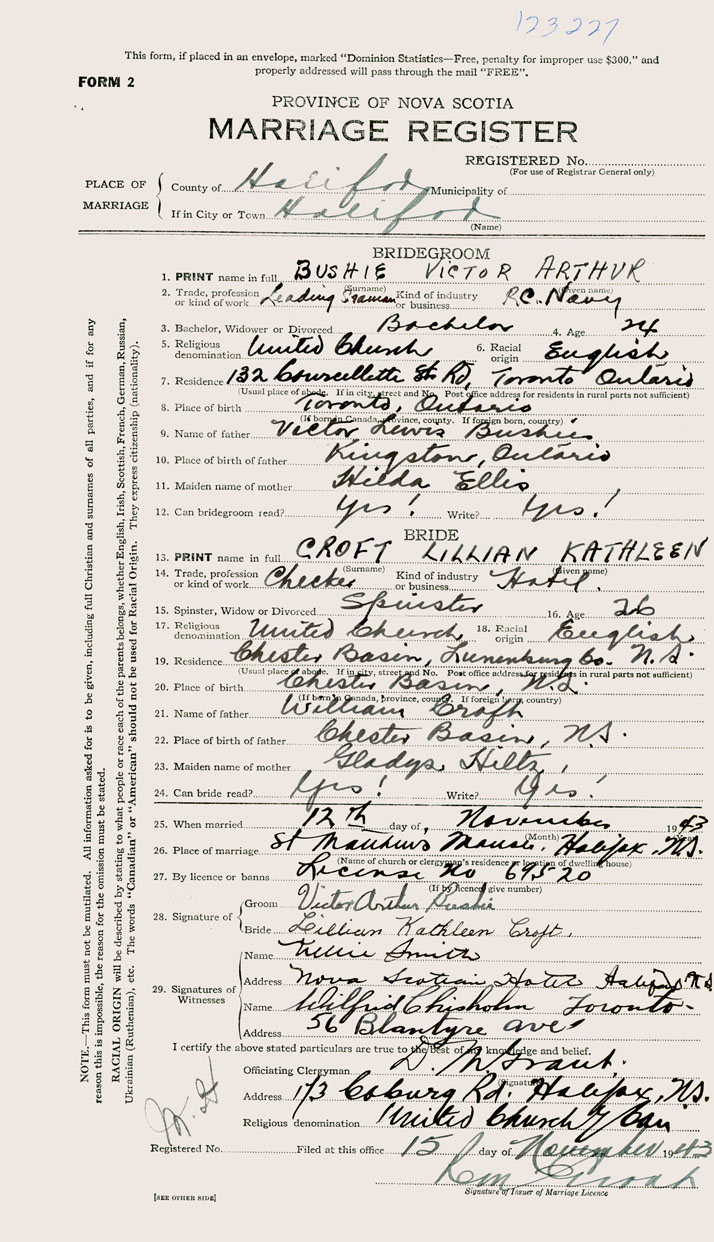 123227
This form, if placed in an envelope, marked "Dominion Statistics—Free, penalty for improper use $300," and
properly addressed will pass through the mail "FREE".
FORM 2
PROVINCE OF NOVA SCOTIA
MARRIAGE REGISTER
REGISTERED No.
(For use of Registrar General only)
PLACE OF MARRIAGE
County of Halifax Municipality of
If in City or Town Halifax
(Name)
BRIDEGROOM
1. PRINT name in full BUSHIE VICTOR ARTHUR
(Surname) (Given name)
2. Trade, profession or kind of work Leading Seaman Kind of industry or business R.C. Navy
3. Bachelor, Widower or Divorced Bachelor 4. Age 24
5. Religious denomination United Church 6. Racial origin English
7. Residence 132 Courcellette Rd, Toronto Ontario
(Usual place of abode. If in city, street and No. Post office address for residents in rural parts not sufficient)
8. Place of birth Toronto, Ontario
(If born in Canada, province, county. If foreign born, country)
9. Name of father Victor Lewis Bushie
10. Place of birth of father Kingston, Ontario
11. Maiden name of mother Hilda Ellis
12. Can bridegroom read? Yes! Write? Yes!
BRIDE
13. PRINT name in full CROFT LILLIAN KATHLEEN
(Surname) (Given name)
14. Trade, profession or kind of work Checker Kind of industry or business Hotel.
15. Spinster, Widow or Divorced Spinster 16. Age 26
17. Religious denomination United Church 18. Racial origin English
19. Residence Chester Basin, Lunenburg Co. N.S.
(Usual place of abode. If in city, street and No. Post office address for residents in rural parts not sufficient)
20. Place of birth Chester Basin, N.S.
(If born in Canada, province, county. If foreign born, country)
21. Name of father William Croft
22. Place of birth of father Chester Basin, N.S.
23. Maiden name of mother Gladys Hiltz,
24. Can bride read? Yes! Write? Yes!
25. When married 12th day of, November 1943
(Month) (Year)
26. Place of marriage St Matthews Manse, Halifax, N.S.
(Name of church or clergyman's residence or location of dwelling house)
27. By licence or banns License No 69520
(If by licence, give number)
28. Signature of
Groom Victor Arthur Bushie
Bride Lillian Kathleen Croft.
29. Signatures of Witnesses
Name Smith
Address Nova Scotian Hotel Halifax N.S.
Name Wilfrid Chisholm Toronto-
Address 56 Blantyre Ave
I certify the above stated particulars are true to the best of my knowledge and belief.
Officiating Clergyman D. M. Grant.
(Signature)
Address 173 Coburg Rd. Halifax, N.S.
Religious denomination United Church of Can
Registered No. Filed at this office 15 day of November 1943
Signature of Issuer of Marriage Licence
[SEE OTHER SIDE]
NOTE.—This form must not be mutilated. All information asked for is to be given, including full Christian and surnames of all parties, and if for any
reason this is impossible, the reason for the omission must be stated.
RACIAL ORIGIN will be described by stating to what people or race each of the parents belongs, whether English, Irish, Scottish, French, German, Russian,
Ukrainian (Ruthenian), etc. The words "Canadian" or "American" should not be used for Racial Origin. They express citizenship (nationality).